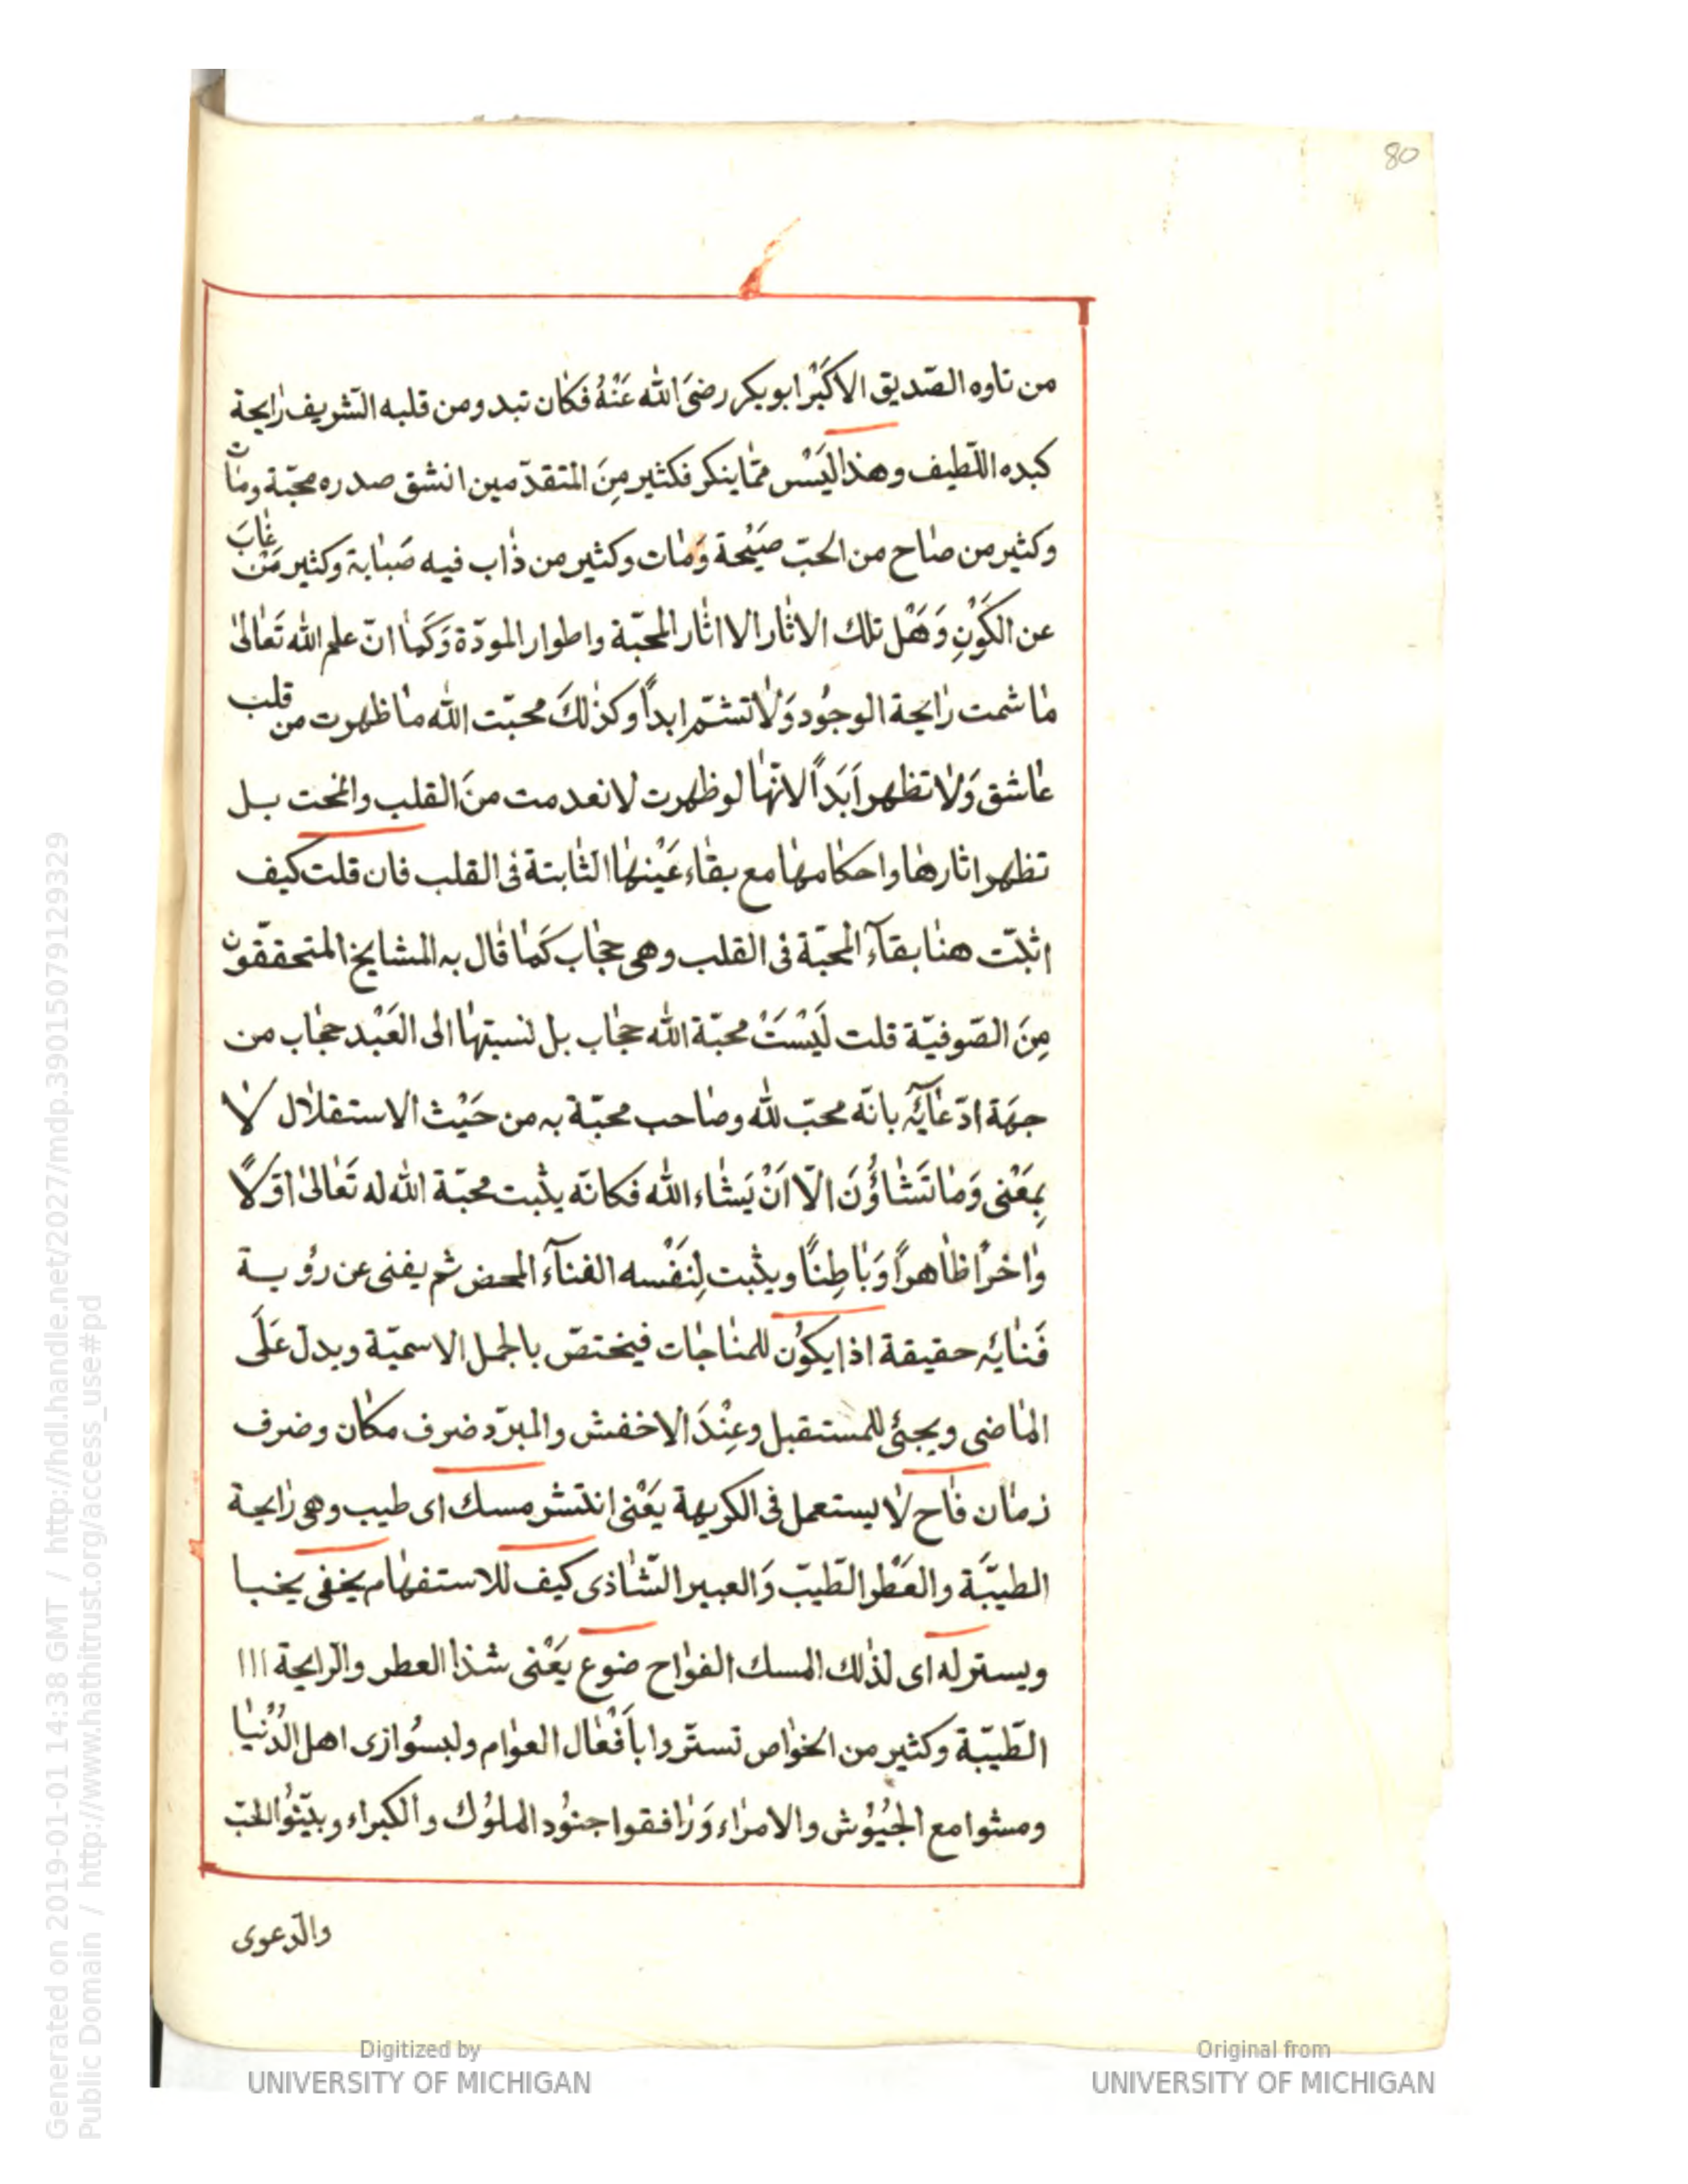 80
من تاوه الصّديق الاكَبْر ابو بكر رضىَ الله عَنْهُ فكان تبدو من قلبه الشريف رايحة
كبده اللّطيف وهذا ليَسْ ممّا ينكر فكثير مِنَ المتقدّمين انشق صدره محبّة ومات
وكثير من صاح من الحبّ صَيْحة وَمات وكثير من ذاب فيه صَبابة وكثير مَنْ غابَ
عن الكَوْنِ وَهَل تلك الاثار الا اثار المحبّة واطوار المودّة وَكَما انّ علم الله تَعالىٰ
ما شمت رايحة الوجُود وَلا تشتمّ ابداً وكذلكَ محبّت الله ما ظهرت من قلب
عاشق وَلا تظهر اَبَداً لانّها لو ظهرت لانعدمت منَ القلب والمخت بل
تظهر اثارها واحكامها مع بقاء عَيْنها الثابتة فى القلب فان قلت كيف
اثبتّ هنا بقآء المحبّة فى القلب وهى حجاب كَما قال به المشايخ المتحققّون
مِنَ الصّوفيّة قلت لَيْسَتْ محبّة الله حجاب بل نسبتها الى العَبْد حجاب من
جهَة ادّعآئَه بانّه محبّ لله وصاحب محبّة به من حَيْث الاستقلال لا
بِمَعْنى وَما تَشاؤُنَ الّا اَنْ يَشاء الله فكانّه يثبت محبّة الله له تَعالىٰ اوّلاً
واخراً ظاهراً وَباطِنًا ويثبت لِنَفْسه الفنآء المحض ثم يفنى عن رؤية
فَنايه حقيقة اذا يكُون للمناجات فيختصّ بالجمل الاسميّة ويدلّ عَلَى
الماضى ويجئ للمستقبل وعِنْدَ الاخفش والمبرّد ضرف مكان وضرف
زمان فاح لا يستعمل فى الكريهة يَعْنى انتشر مسك اى طيب وهى رايحة
الطيبّة والعَطْر الطّيبّ وَالعبير الشّاذى كيف للاستفهام يخفى يخبا
ويستر له اى لذلك المسك الفواح ضوع يَعْنى شذا العطر والرايحة ااا
الطّيبّة وكثير من الخواص تستّروا بأَفْعال العوام ولبسُوا زى اهل الدُّنْيا
ومشوا مع الجيُوُش والامراء وَرافقوا جنوُد الملوُك والكبراء وبيّنوُا للحبّ
والدّعوى
Generated on 2019-01-01 14:38 GMT / http://hdl.handle.net/2027/mdp.39015079129329
Public Domain / http://www.hathitrust.org/access_use#pd
Digitized by
UNIVERSITY OF MICHIGAN
Original from
UNIVERSITY OF MICHIGAN